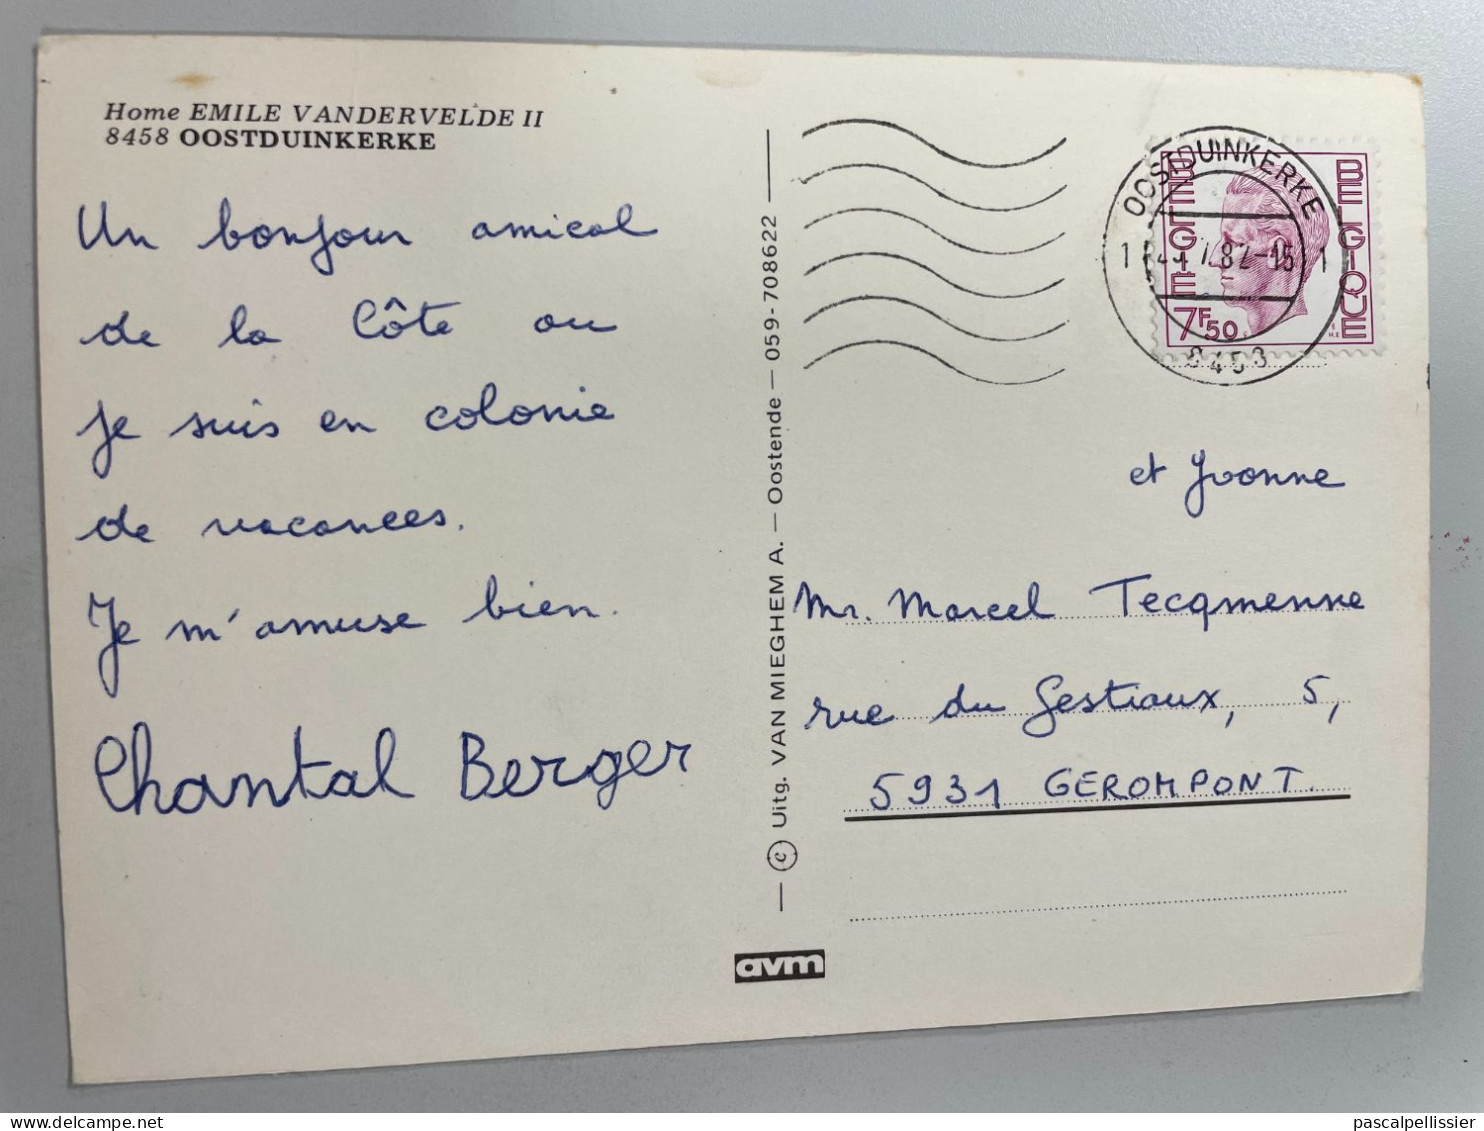 Home EMILE VANDERVELDE II
8458 OOSTDUINKERKE
Un bonjour amical
de la Côte ou
je suis en colonie
de vacances.
Je m'amuse bien.
Chantal Berger
© Uitg. VAN MIEGHEM A. — Oostende — 059-708622
avm
OOSTDUINKERKE
82-15
8458
BELGIE
BELGIQUE
7F50
et Yvonne
Mr. Marcel Tecqmenne
rue du Gestiaux, 5,
5931 GEROMPONT.
pascalpellissier